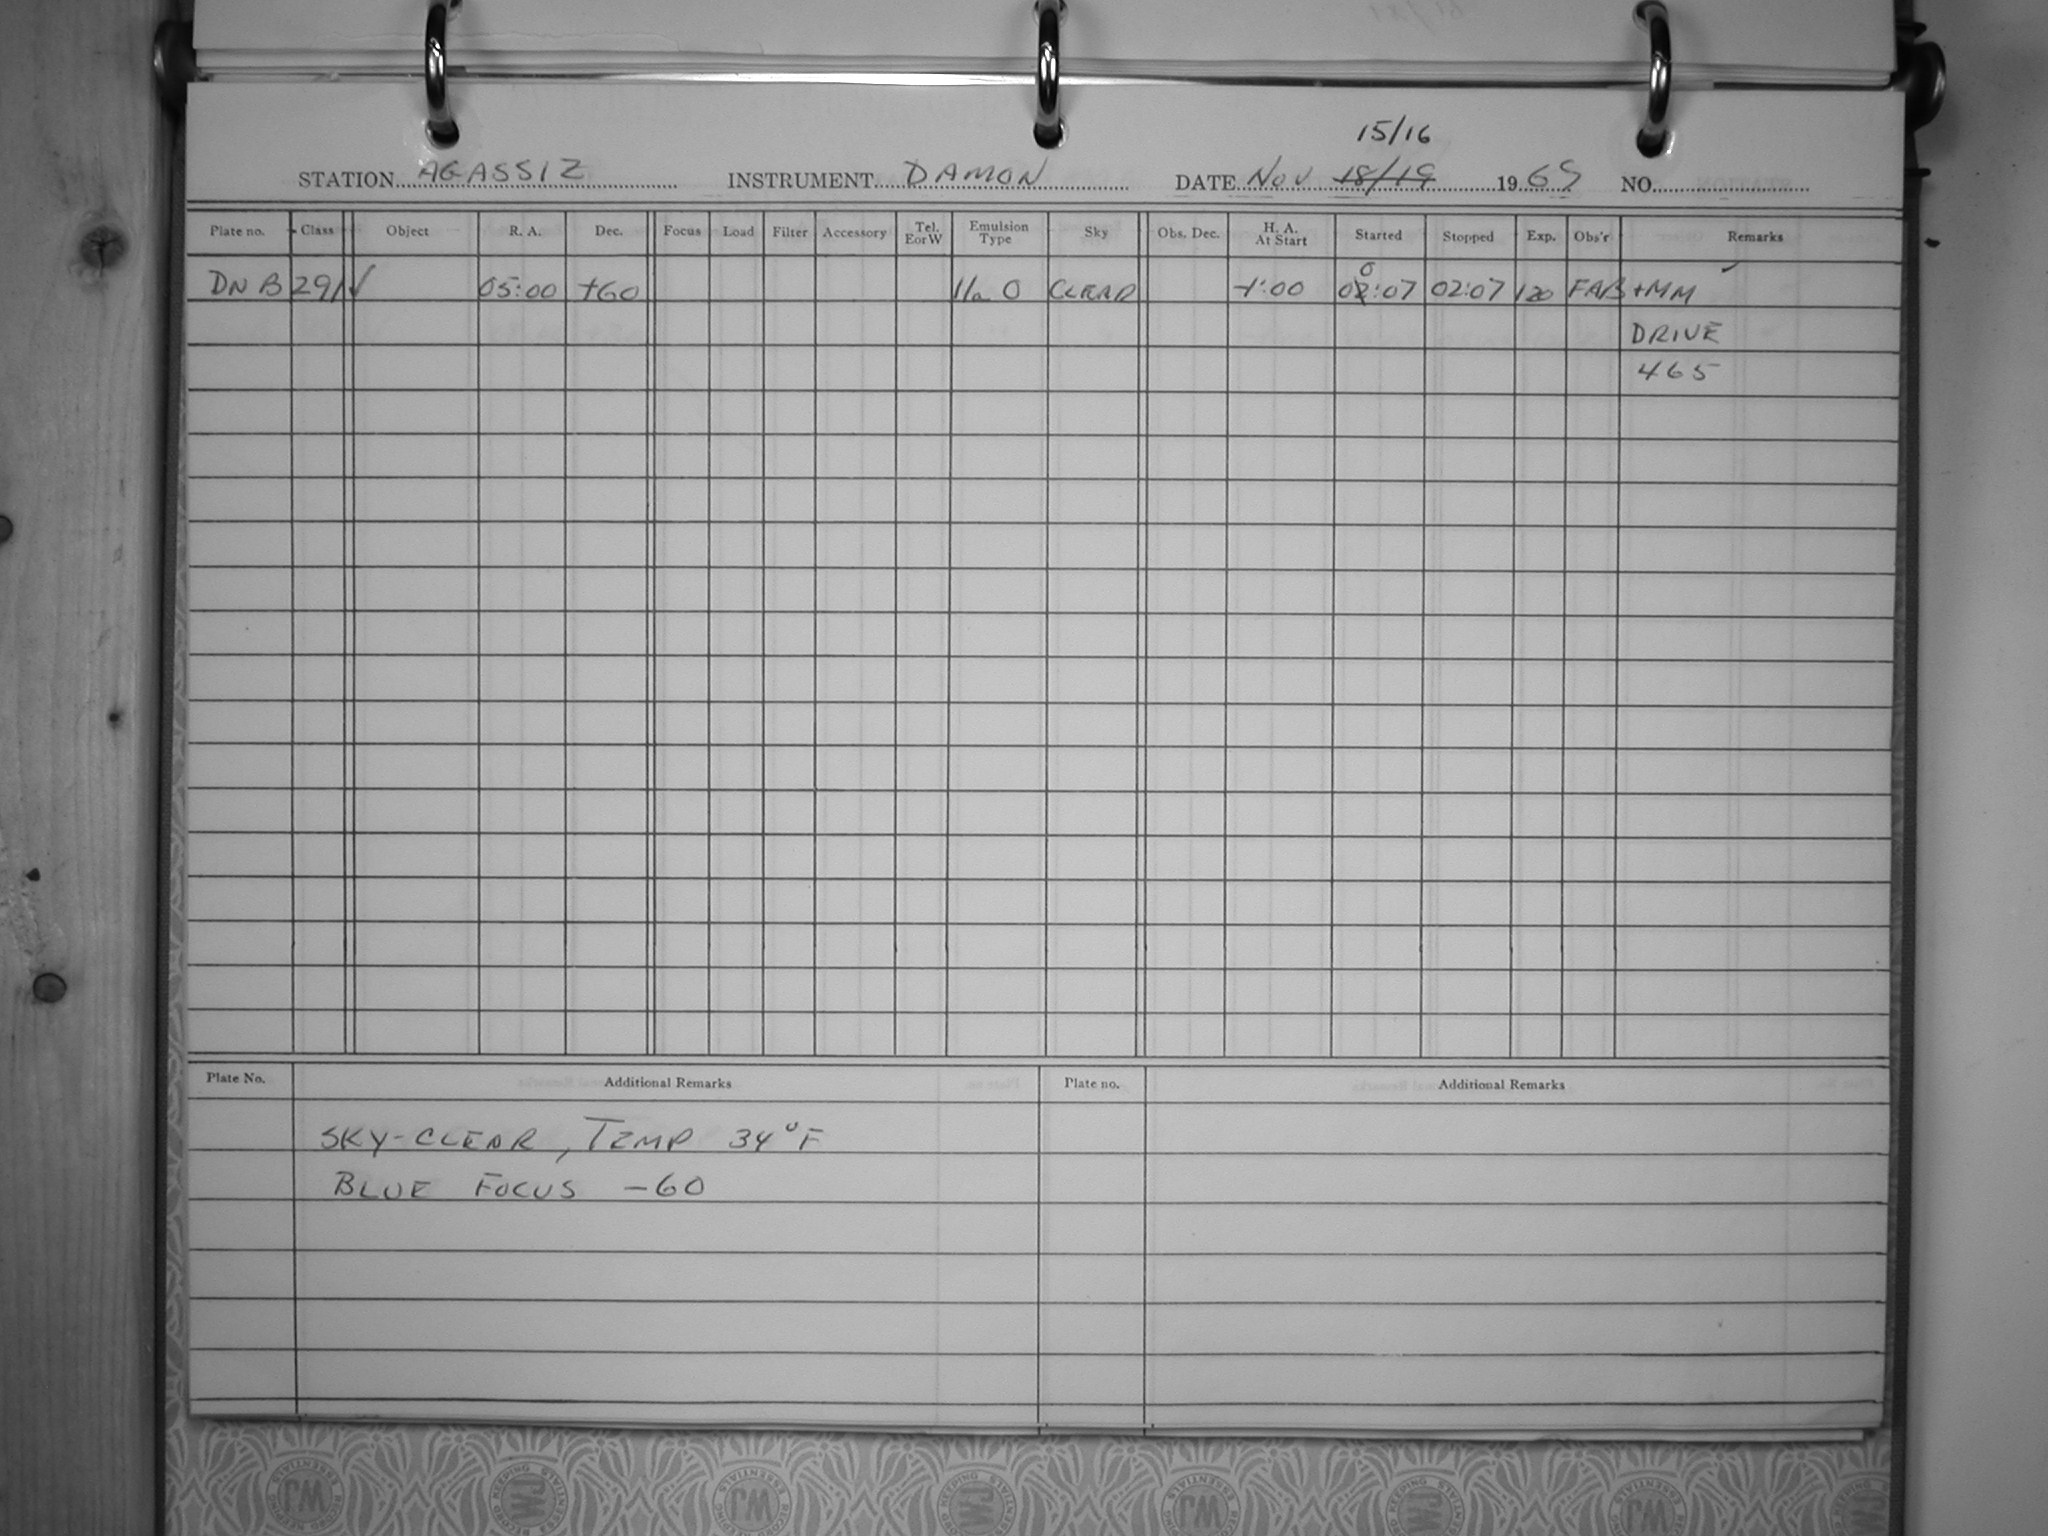 15/16
STATION AGASSIZ INSTRUMENT DAMON DATE NOV 18/19 1969 NO.
Plate no. Class Object R. A. Dec. Focus Load Filter Accessory Tel. E or W Emulsion Type Sky Obs. Dec. H. A. At Start Started Stopped Exp. Obs'r Remarks
DNB 291 ✓ 05:00 +60 IIa O CLEAR -1:00 00:07 02:07 120 FAB +MM
DRIVE
465
Plate No. Additional Remarks Plate no. Additional Remarks
SKY-CLEAR, TEMP 34°F
BLUE FOCUS -60
WJ
ESSENTIALS
RECORD KEEPING